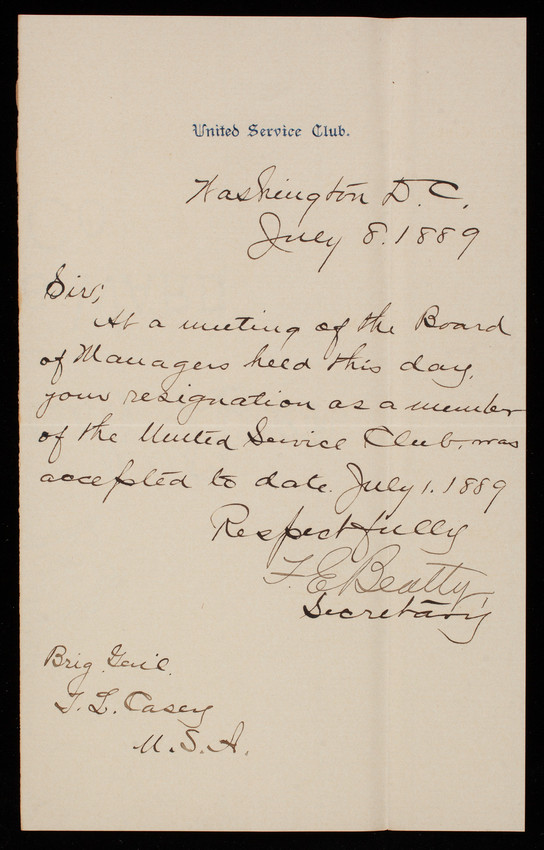 United Service Club.
Washington D. C.
July 8. 1889
Sir;
At a meeting of the Board
of Managers held this day,
your resignation as a member
of the United Service Club, was
accepted to date July 1. 1889
Respectfully
F. E. Beatty,
Secretary
Brig Genl.
T. L. Casey
U. S. A.